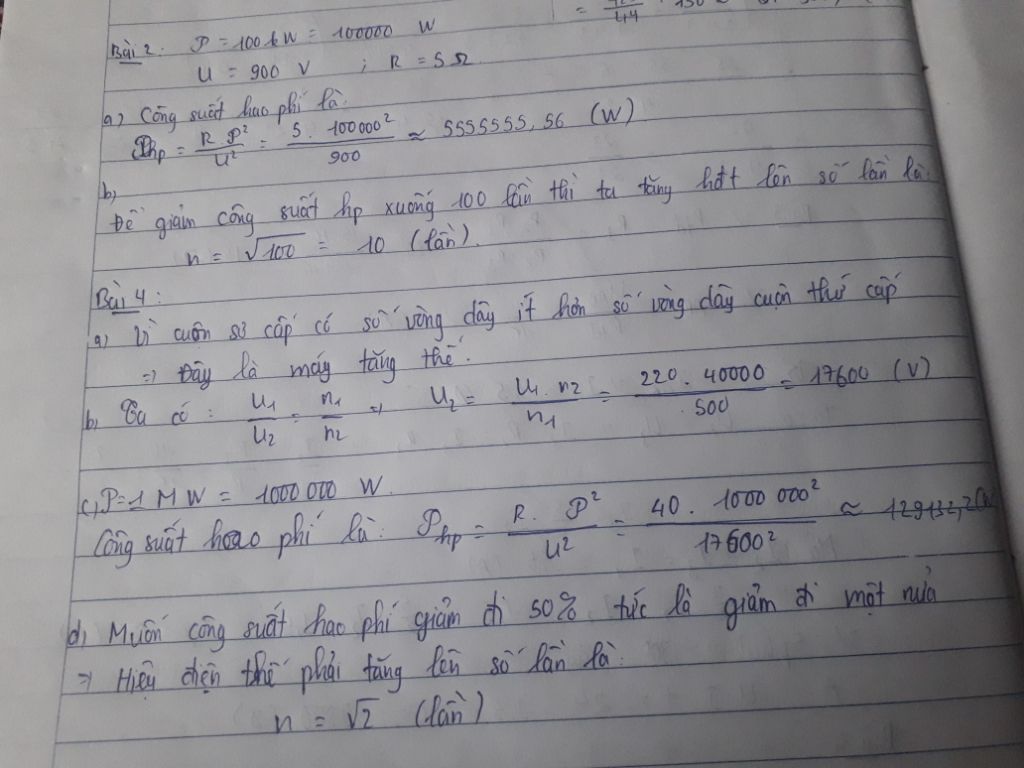 Bài 2. P = 100 kW = 100000 W
U = 900 V ; R = 5 Ω
a) Công suất hao phí là:
Php = R.P²/U² = 5.100000²/900 ≈ 5555555,56 (W)
b)
Để giảm công suất hp xuống 100 lần thì ta tăng hđt lên số lần là:
n = √100 = 10 (lần).
Bài 4:
a) Vì cuộn sơ cấp có số vòng dây ít hơn số vòng dây cuộn thứ cấp
⇒ Đây là máy tăng thế.
b, Ta có: U1/U2 = n1/n2 ⇒ U2 = U1.n2/n1 = 220.40000/500 = 17600 (V)
c, P = 1 MW = 1000 000 W.
Công suất hao phí là: Php = R.P²/U² = 40.1000 000²/17600² ≈ 129132,2(W
d, Muốn công suất hao phí giảm đi 50% tức là giảm đi một nửa
⇒ Hiệu điện thế phải tăng lên số lần là:
n = √2 (lần)